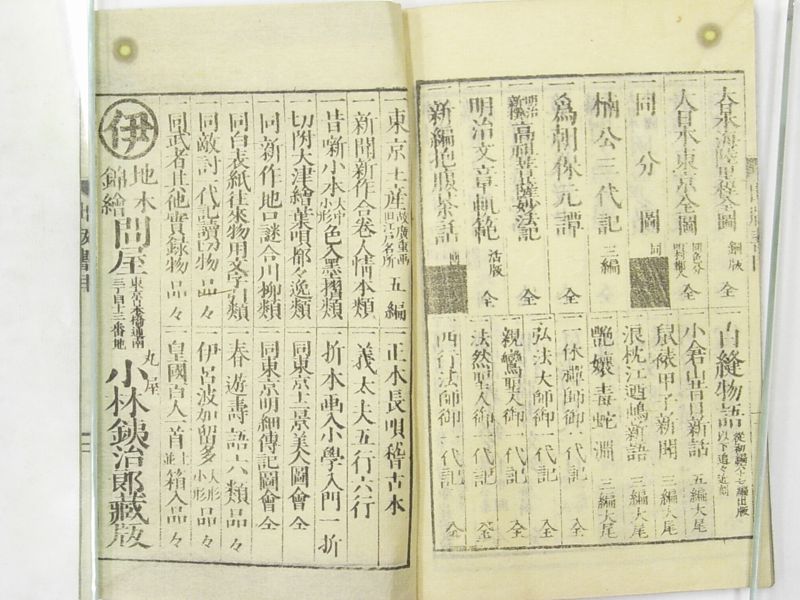 大日本海陸里程全圖 銅版 全
大日本東京全圖 全
同 分 圖 同
楠公三代記 三編
爲朝保元譚 全
高祖菩薩妙法記 全
明治文章軌範 活版 全
新編抱腹茶話
白縫物語
小倉山昔日新話 五編大尾
鼠祿甲子新聞 三編大尾
浪枕江迺嶋新語 三編大尾
艶孃毒蛇淵 三編大尾
一休禪師御一代記 全
弘法大師御一代記 全
親鸞聖人御一代記 全
法然聖人御一代記 全
西行法師御一代記 全
東京土産 五編
一新聞新作合卷人情本類
一昔噺小本 大中小形 色入墨摺類
切附大津繪葉唄都々逸類
一同新作地口謎合川柳類
一同白表紙往來物用文字引類
一同敵討一代記讀切物 品々
一同武者其他實録物 品々
一正本長唄稽古本
一義太夫五行六行
一折本画入小學入門一折
一同東京三十景美人圖會 全
一同東京明細傳記圖會 全
一春遊壽語六類品々
一伊呂波加留多 大形小形 品々
一皇國百人一首 並上 箱入品々
伊
地本
錦繪
問屋
東京日本橋通南
三丁目十三番地
丸屋
小林鉄治郎藏版